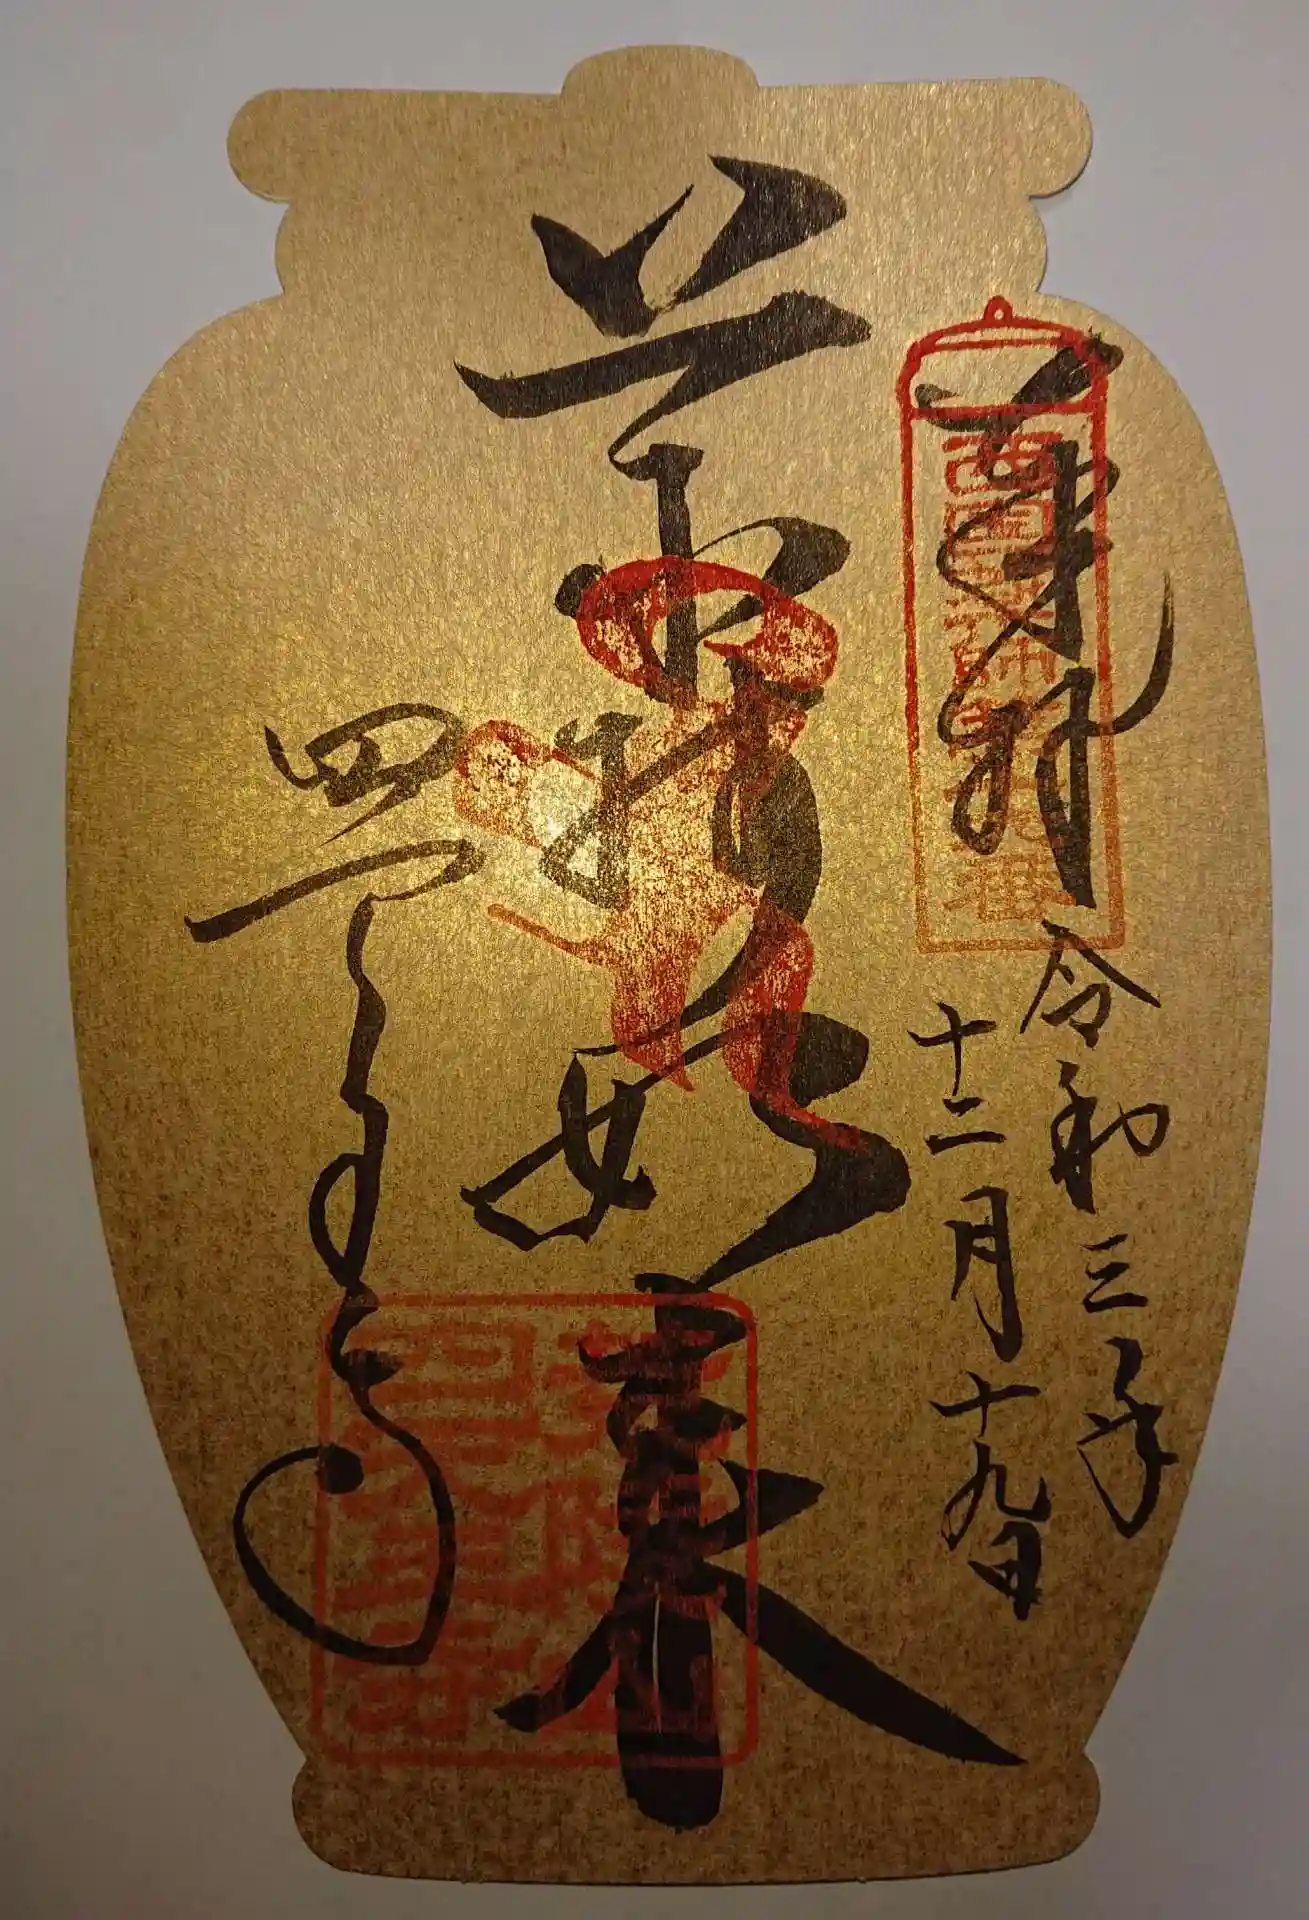 奉拝
令和三年
十二月十九日
薬師如来
四天王寺